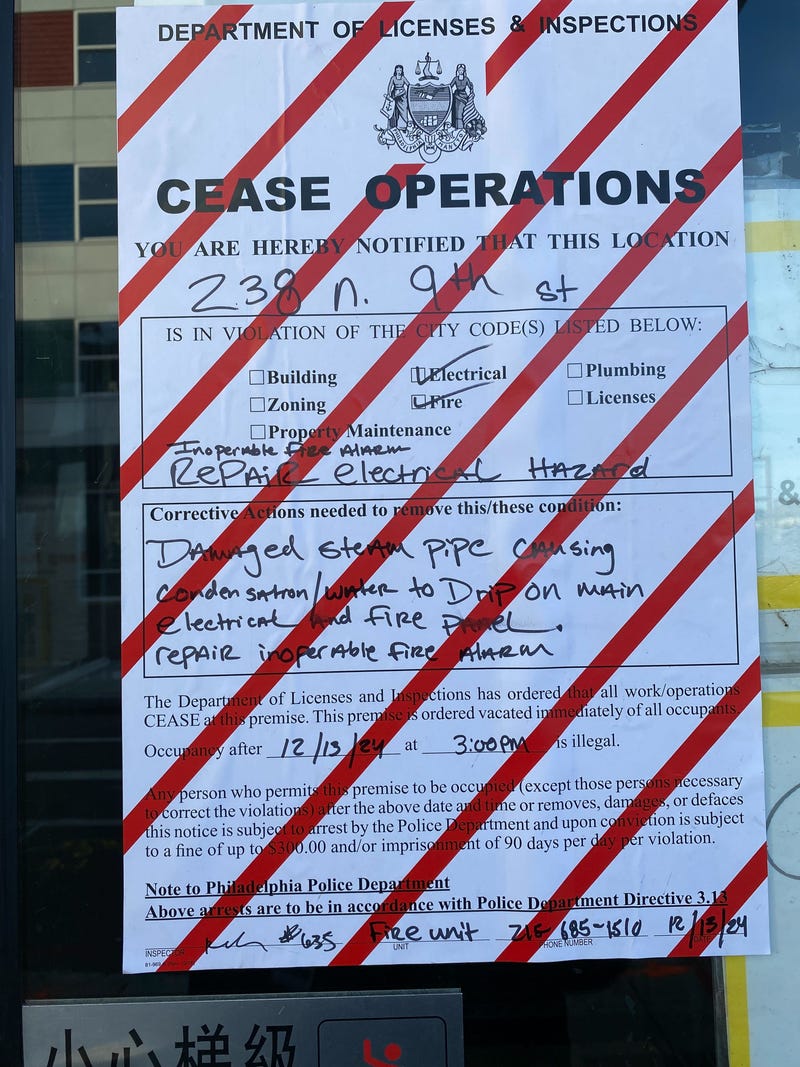 DEPARTMENT OF LICENSES & INSPECTIONS
CEASE OPERATIONS
YOU ARE HEREBY NOTIFIED THAT THIS LOCATION
238 n. 9th st
IS IN VIOLATION OF THE CITY CODE(S) LISTED BELOW:
Building Electrical Plumbing
Zoning Fire Licenses
Property Maintenance
Inoperable Fire Alarm
Repair electrical Hazard
Corrective Actions needed to remove this/these condition:
Damaged steam pipe causing
condensatron/water to Drip on main
electrical and fire panel.
repair inoperable fire alarm
The Department of Licenses and Inspections has ordered that all work/operations
CEASE at this premise. This premise is ordered vacated immediately of all occupants.
Occupancy after 12/13/24 at 3:00PM is illegal.
Any person who permits this premise to be occupied (except those persons necessary
to correct the violations) after the above date and time or removes, damages, or defaces
this notice is subject to arrest by the Police Department and upon conviction is subject
to a fine of up to $300.00 and/or imprisonment of 90 days per day per violation.
Note to Philadelphia Police Department
Above arrests are to be in accordance with Police Department Directive 3.13
#635 Fire unit 215 685-1510 12/13/24
INSPECTOR UNIT PHONE NUMBER DATE
小心梯級